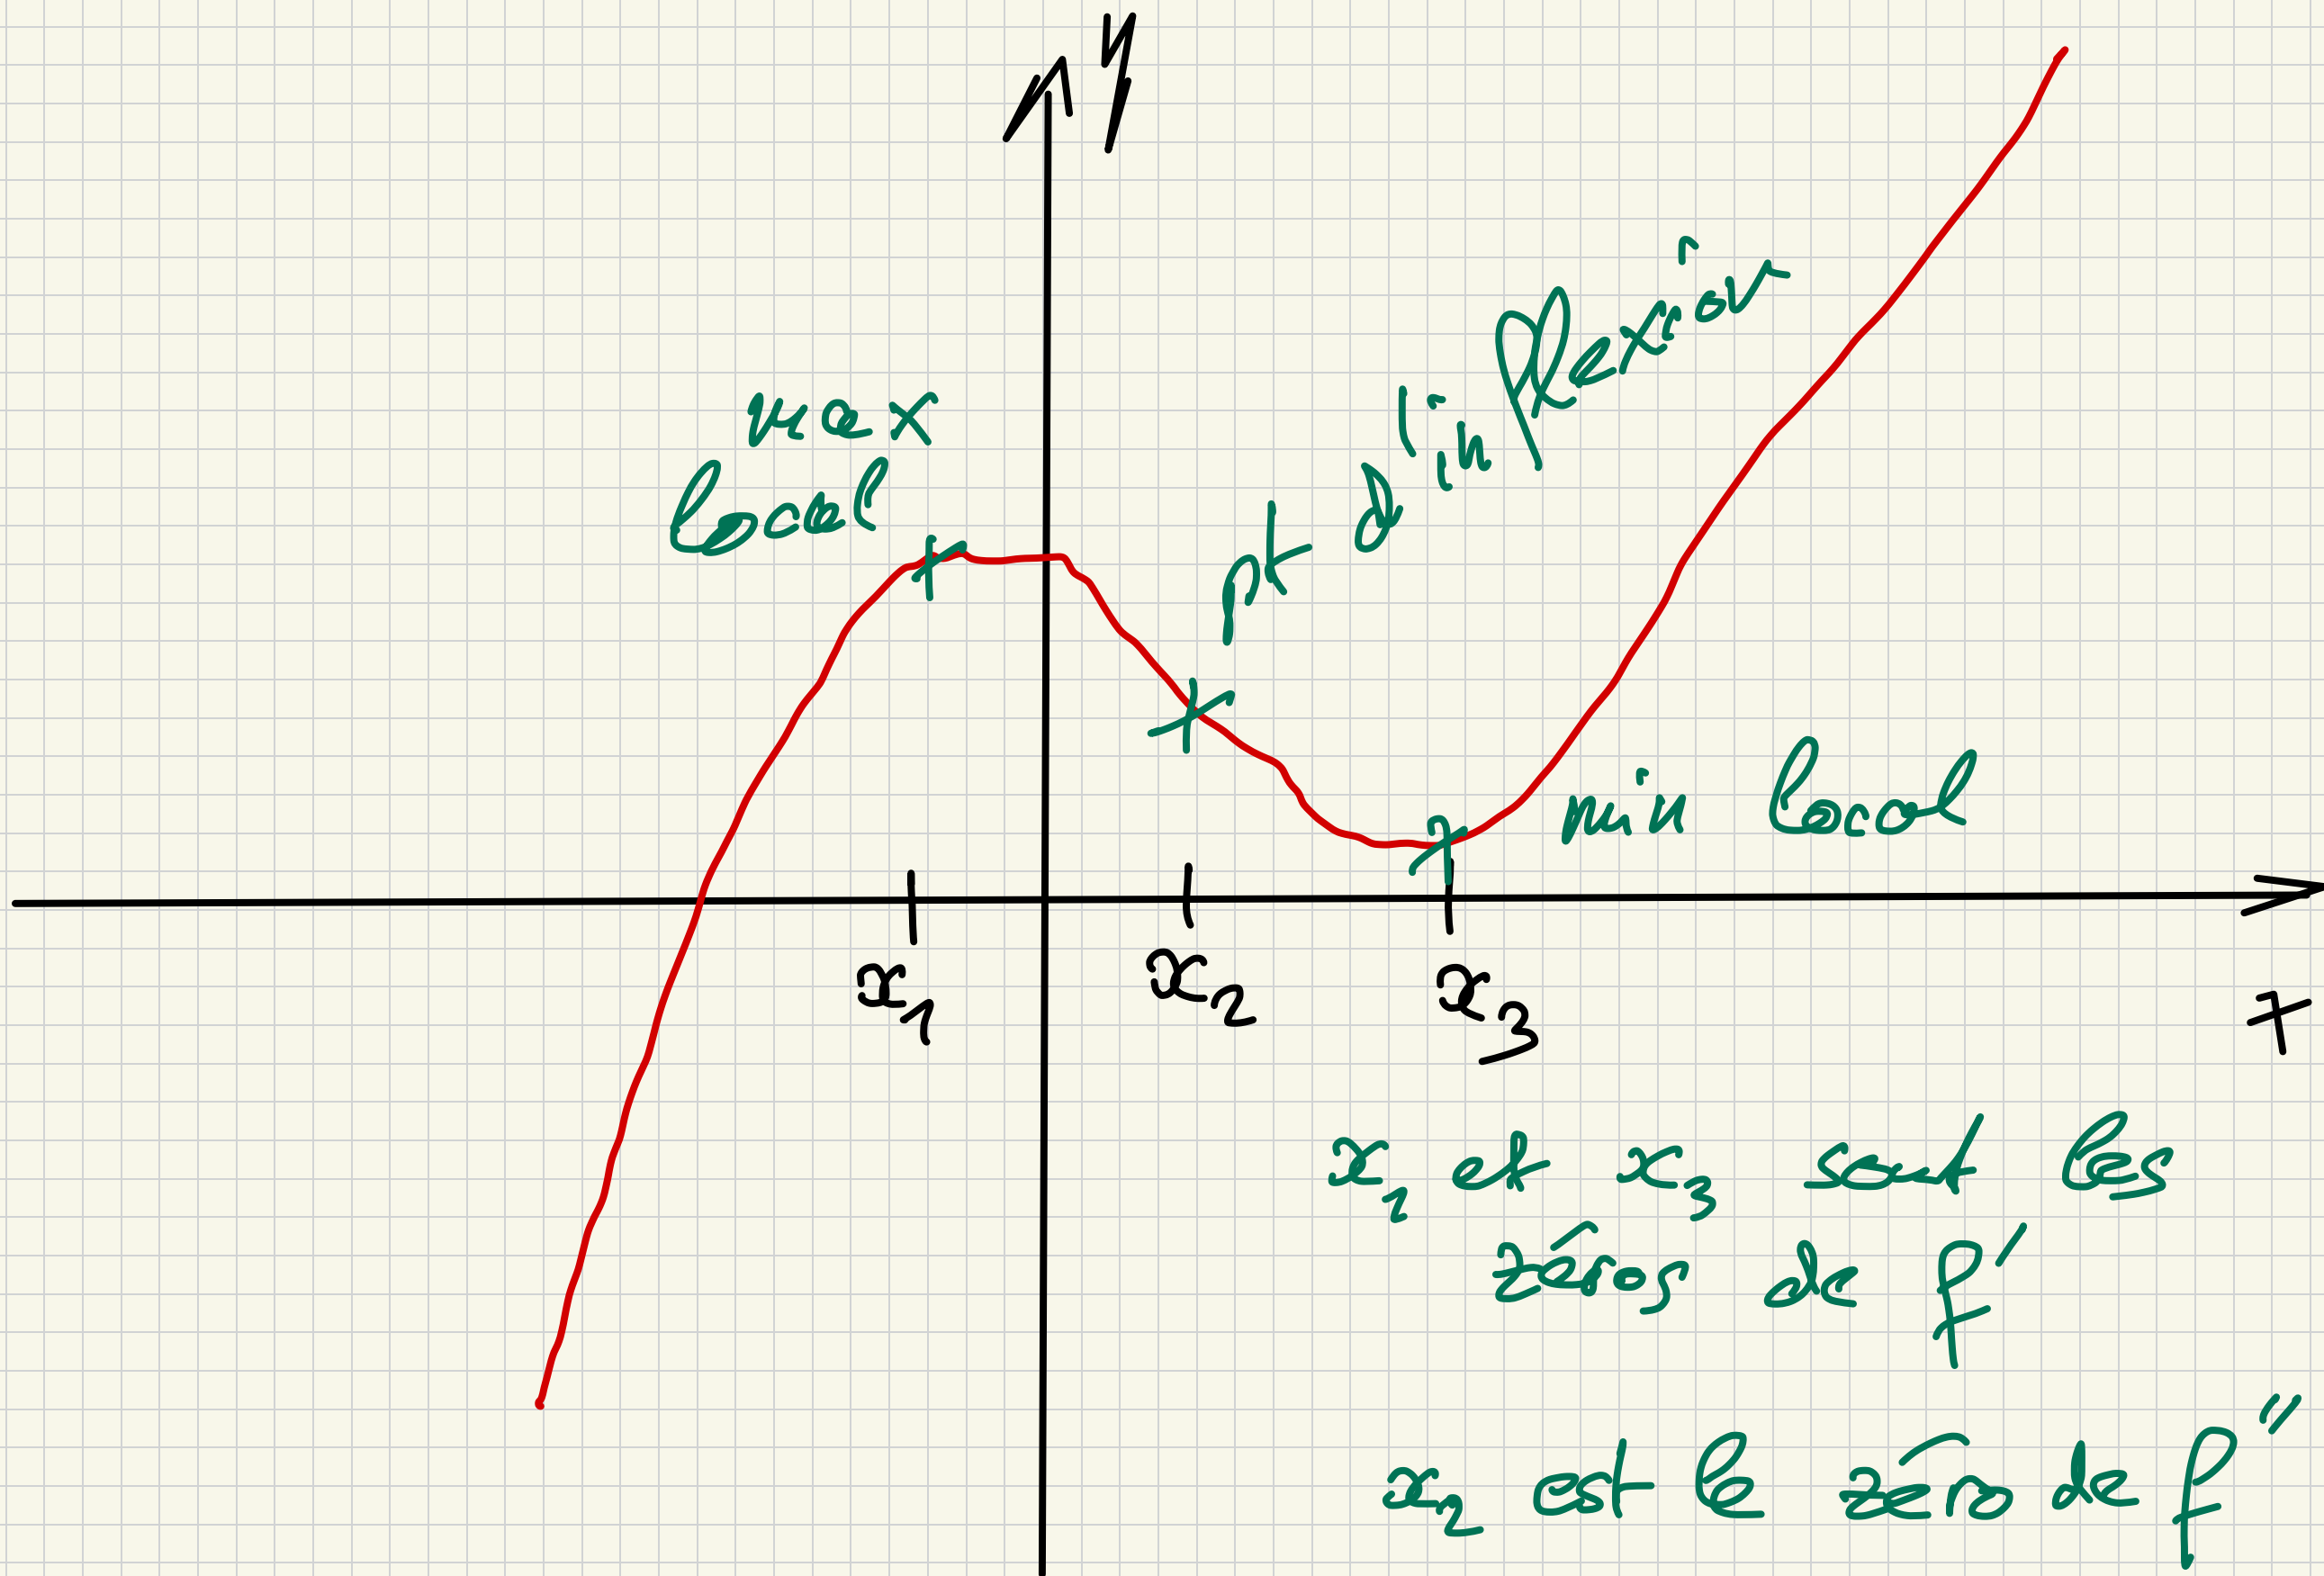 y
max
local
pt d'inflexion
min local
x₁ x₂ x₃
x
x₁ et x₃ sont les
zéros de f'
x₂ est le zéro de f"